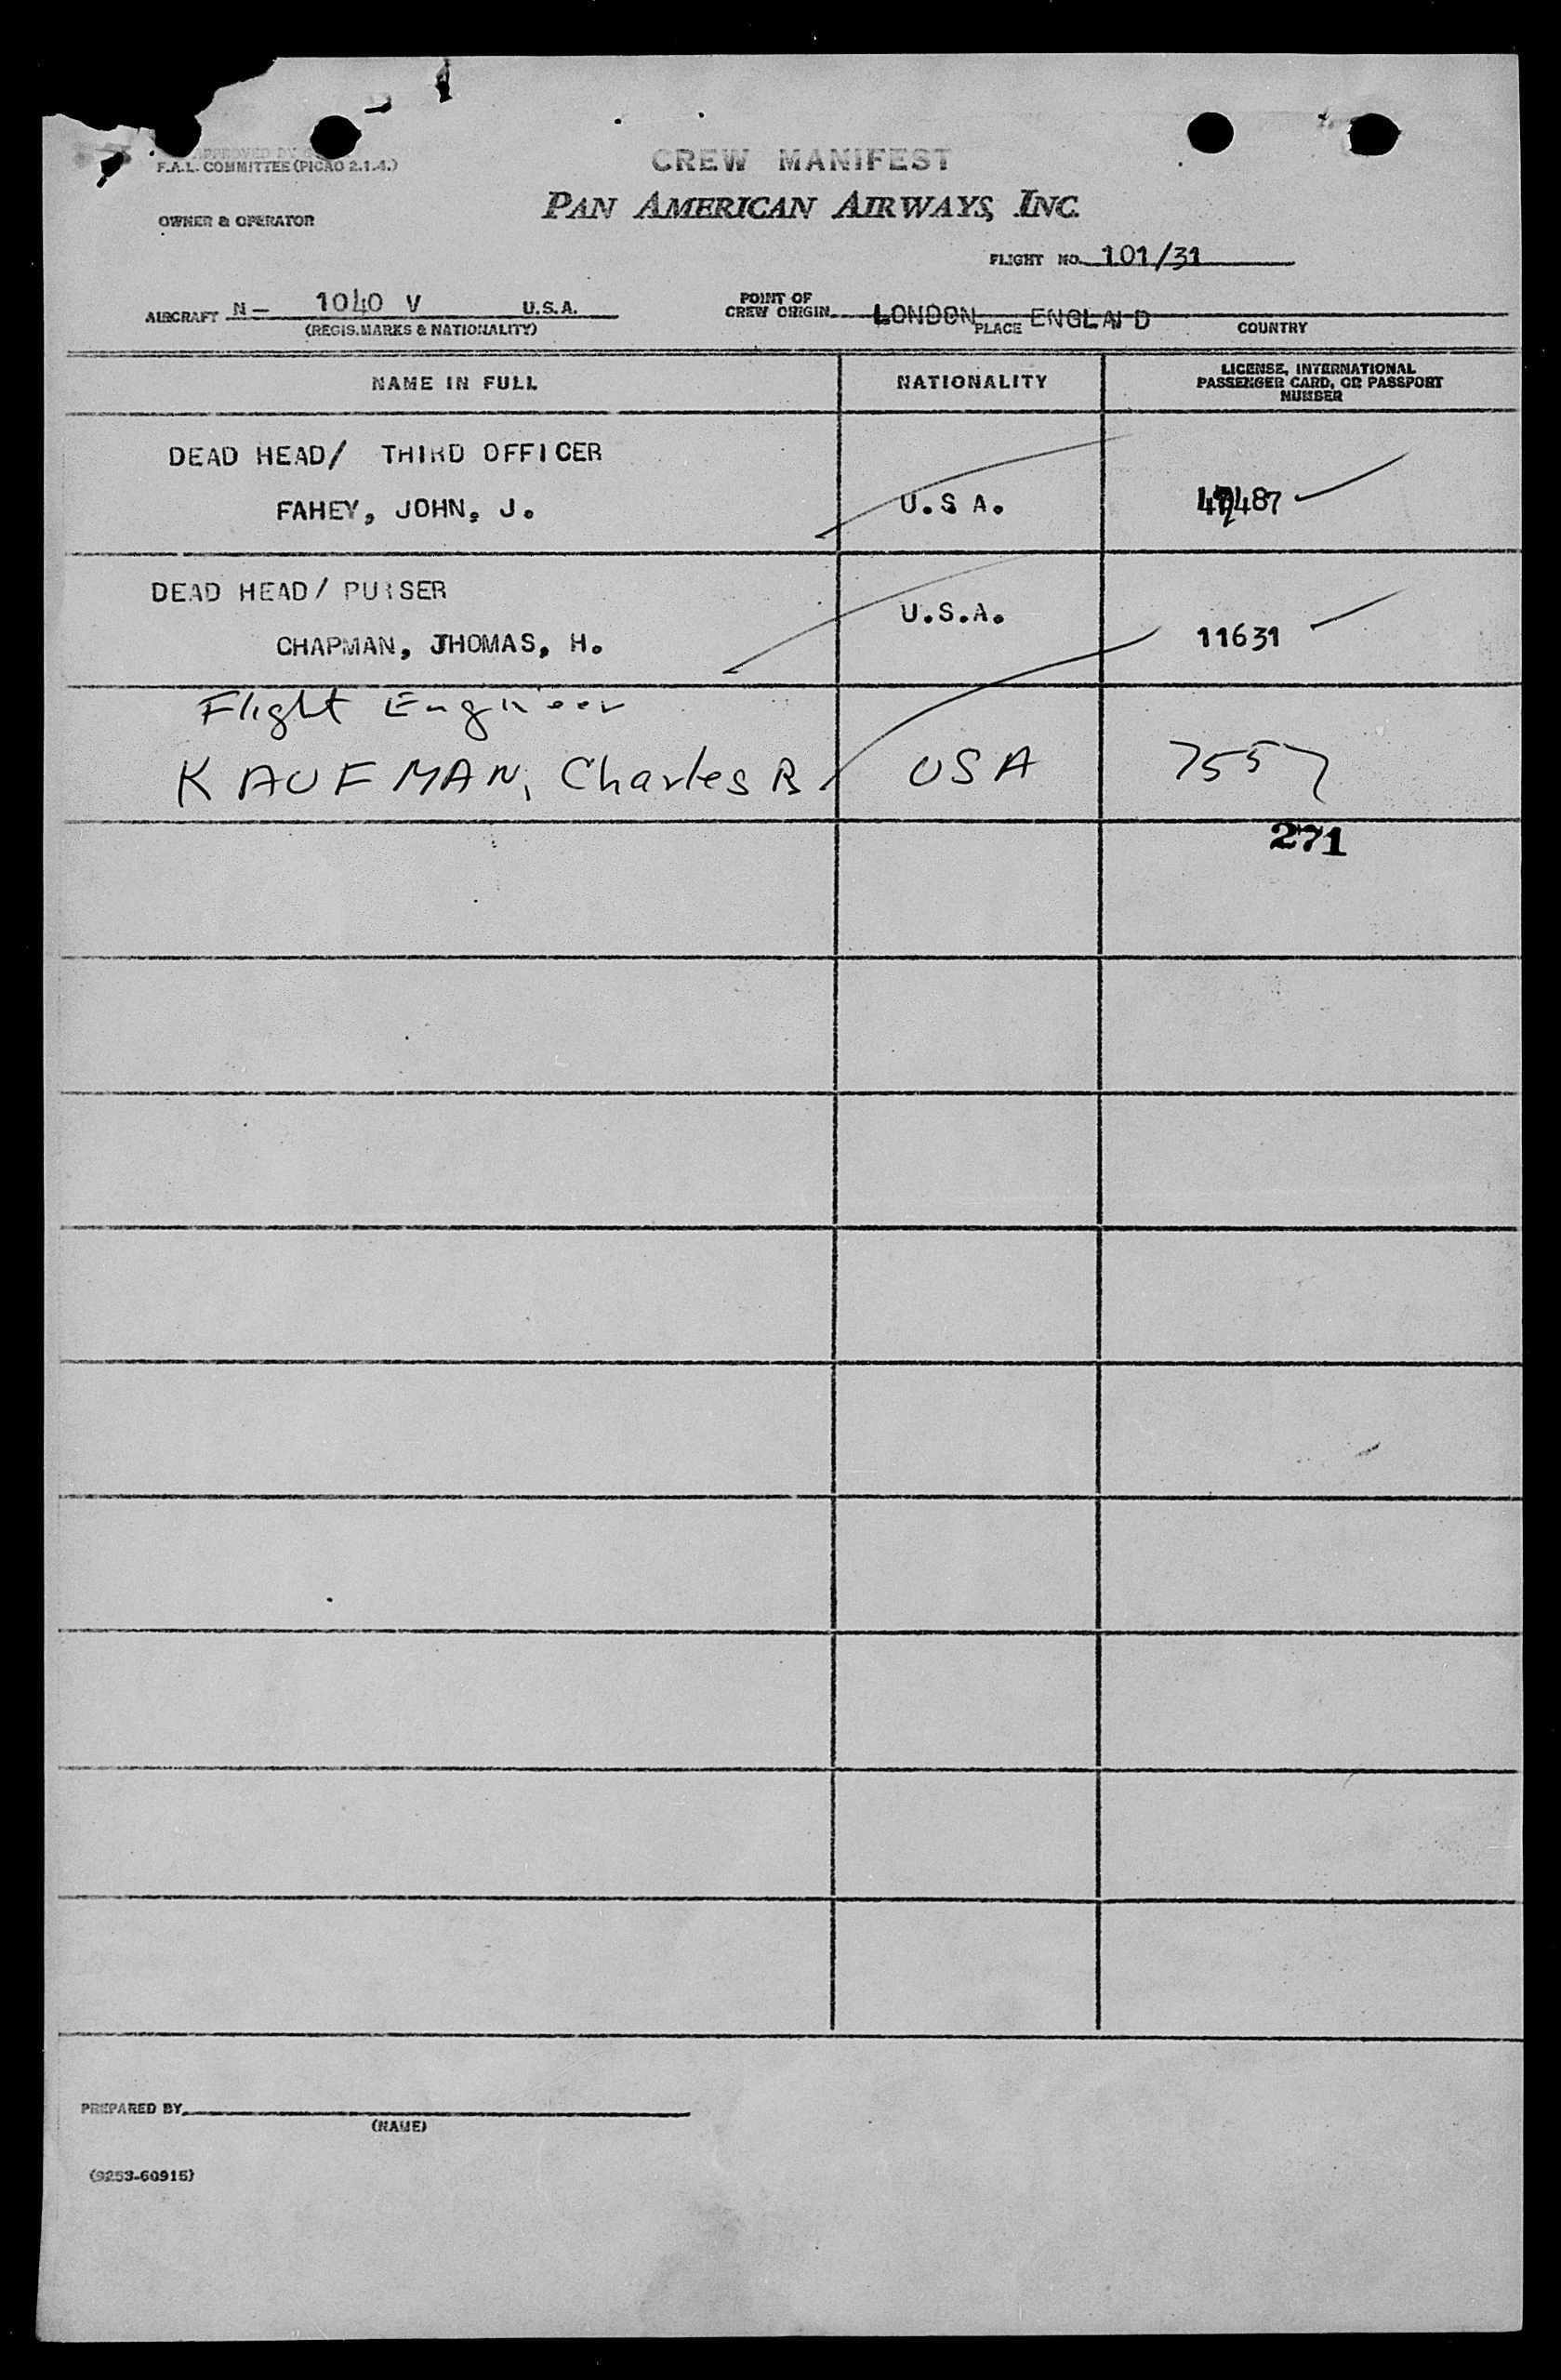 APPROVED BY
F.A.L. COMMITTEE (PICAO 2.1.4.)
CREW MANIFEST
PAN AMERICAN AIRWAYS, INC.
OWNER & OPERATOR
FLIGHT NO. 101/31
AIRCRAFT N- 1040 V U.S.A.
(REGIS. MARKS & NATIONALITY)
POINT OF
CREW ORIGIN LONDON ENGLAND
PLACE COUNTRY
NAME IN FULL NATIONALITY LICENSE, INTERNATIONAL
PASSENGER CARD, OR PASSPORT
NUMBER
DEAD HEAD/ THIRD OFFICER
FAHEY, JOHN, J. U.S A.
DEAD HEAD/ PURSER
CHAPMAN, THOMAS, H. U.S.A. 11631
Flight Engineer
KAUFMAN, Charles B USA 7557
271
PREPARED BY
(NAME)
(9253-60915)